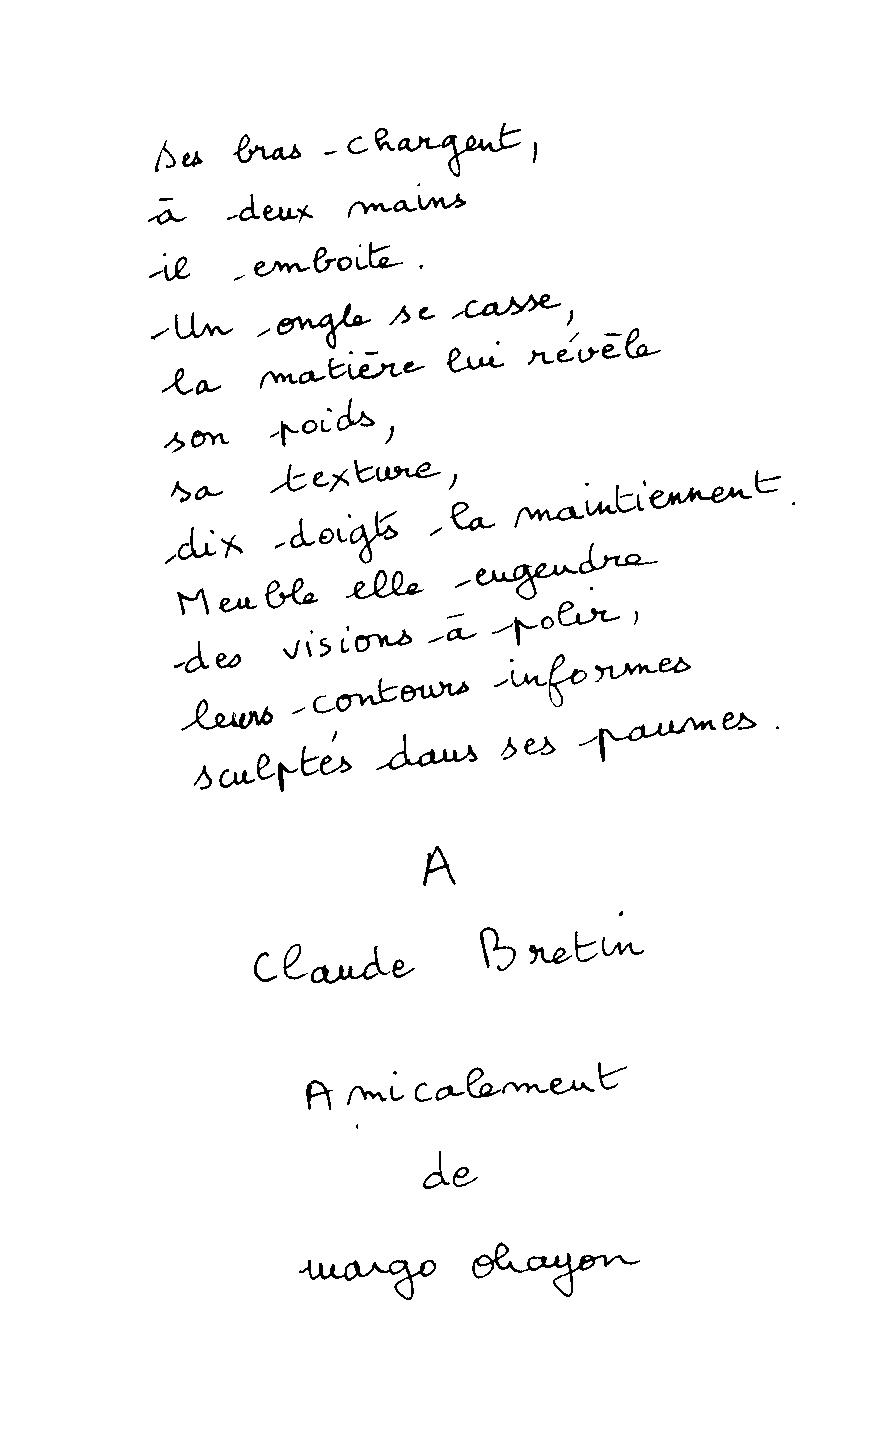 Ses bras chargent,
à deux mains
il emboite.
Un ongle se casse,
la matière lui révèle
son poids,
sa texture,
dix doigts la maintiennent.
Meuble elle engendre
des visions à polir,
leurs contours informes
sculptés dans ses paumes.
A
Claude Bretin
Amicalement
de
margo ohayon